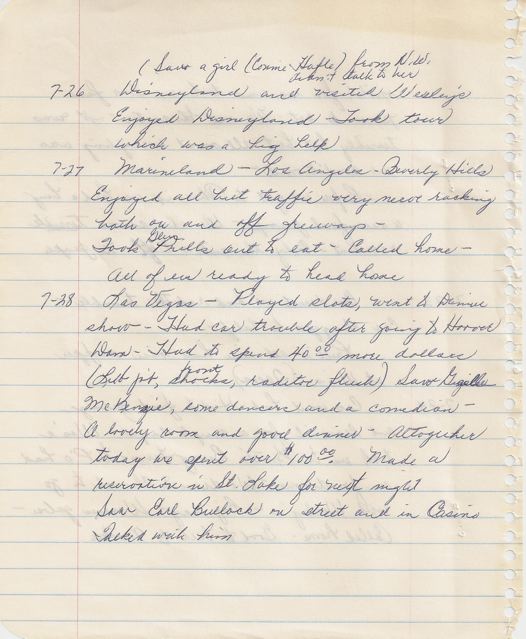 (Saw a girl (Connie Hafle) from N.W.
didn't talk to her
7-26 Disneyland and visited Wesley's
Enjoyed Disneyland - Took tour
which was a big help
7-27 Marineland - Los Angeles - Beverly Hills
Enjoyed all but traffic very nerve racking
both on and off freeways -
Took Glen Mills out to eat - Called home -
All of em ready to head home
7-28 Las Vegas - Played slots, went to Dinner
show - Had car trouble after going to Hoover
Dam - Had to spend 40.00 more dollars
(Lub job, front shocks, raditor flush) Saw
McKenzie, some dancers and a comedian -
A lovely room and good dinner - Altogether
today we spent over $100.00. Made a
reservation in St. Lake for next night
Saw Earl Bullock on street and in Casino
Talked with him